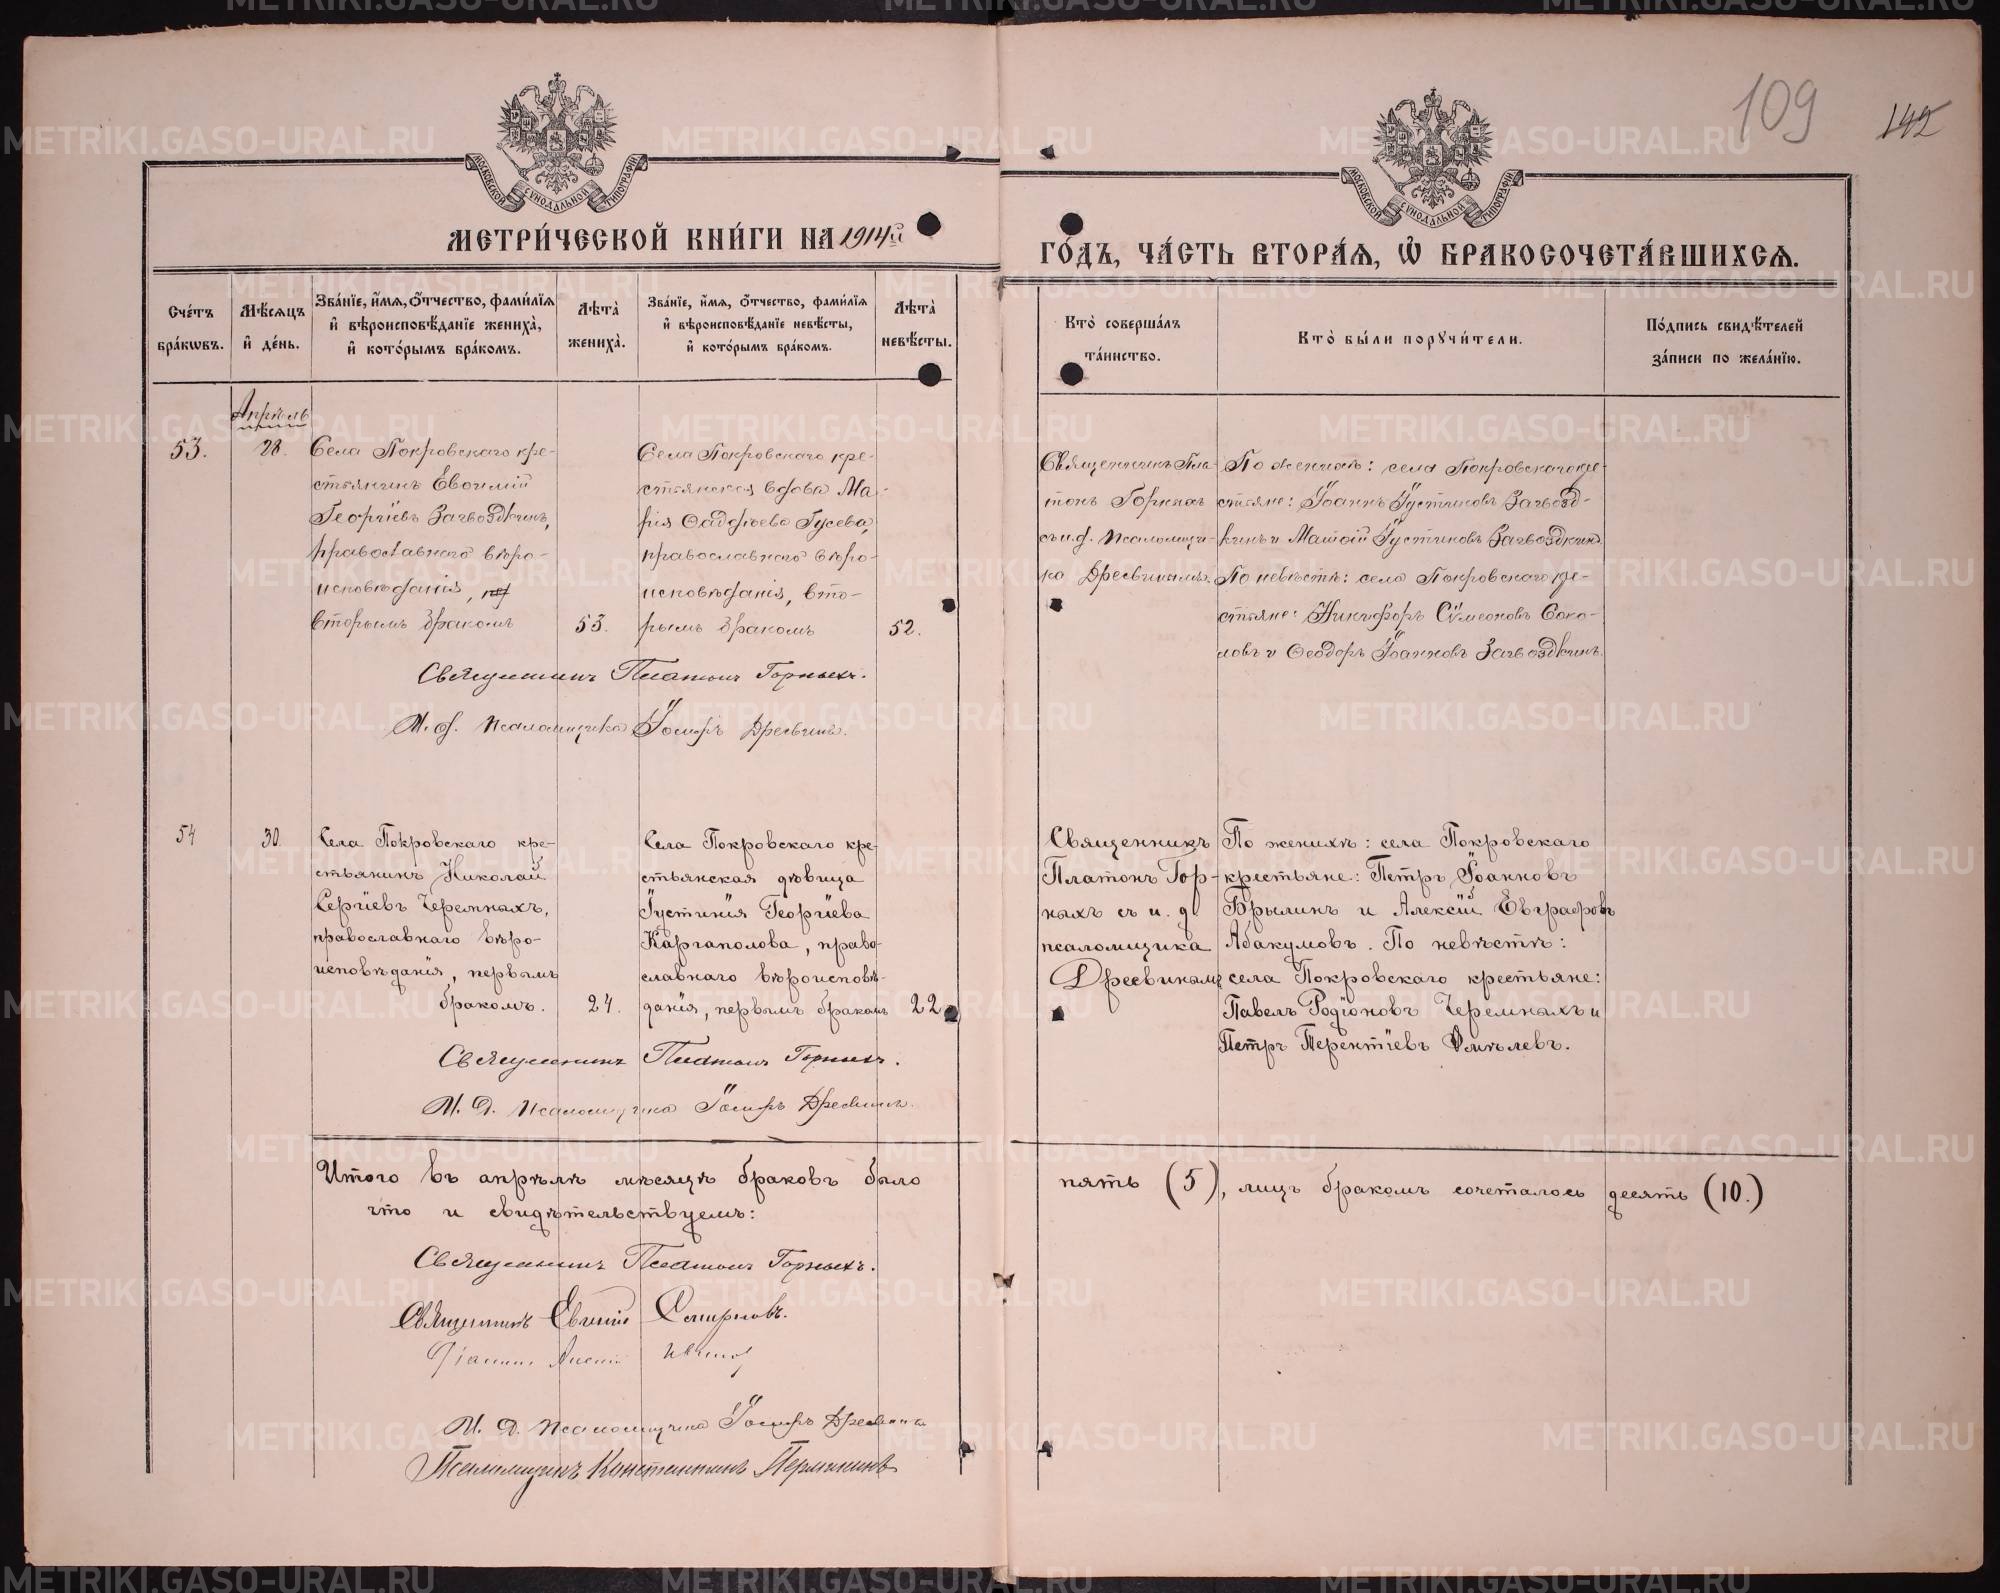 109
142
МОСКОВСКОЙ СУНОДАЛЬНОЙ ТИПОГРАФІИ
МОСКОВСКОЙ СУНОДАЛЬНОЙ ТИПОГРАФІИ
МЕТРИ́ЧЕСКОЙ КНИ́ГИ НА 1914й
ГО́ДЪ, ЧА́СТЬ ВТОРА́Я, Ѽ БРАКОСОЧЕТА́ВШИХСЯ.
Сче́тъ бра́кωвъ.
Мѣ́сяцъ и҆ де́нь.
Зва́нїе, и҆́мя, ѻ҆́тчество, фами́лїя
и҆ вѣроисповѣ́данїе жениха̀,
и҆ кото́рымъ бра́комъ.
Лѣта̀ жениха̀.
Зва́нїе, и҆́мя, ѻ҆́тчество, фами́лїя
и҆ вѣроисповѣ́данїе невѣ́сты,
и҆ кото́рымъ бра́комъ.
Лѣта̀ невѣ́сты.
Кто̀ соверша́лъ та́инство.
Кто̀ бы́ли порꙋчи́тели.
По́дпись свидѣ́телей
за́писи по жела́нїю.
Апрѣль
53.
28.
Села Покровскаго кре-
стьянинъ Евѳимій
Георгіевъ Загвоздкинъ,
православнаго вѣро-
исповѣданія,
вторымъ бракомъ
53.
Села Покровскаго кре-
стьянская вдова Ма-
рія Ѳаддѣева Гусева,
православнаго вѣро-
исповѣданія, вто-
рымъ бракомъ
52.
Священникъ Пла-
тонъ Горныхъ
съ и.д. псаломщи-
ка Дресвинымъ.
По женихѣ: села Покровскаго кре-
стьяне: Іоаннъ Іустиновъ Загвозд-
кинъ и Матѳій Іустиновъ Загвоздкинъ.
По невѣстѣ: села Покровскаго кре-
стьяне: Никифоръ Сѵмеоновъ Соко-
ловъ и Ѳеодоръ Іоанновъ Загвоздкинъ.
Священникъ Платонъ Горныхъ.
И. д. псаломщика Іосифъ Дресвинъ.
54
30.
Села Покровскаго кре-
стьянинъ Николай
Сергіевъ Черемныхъ,
православнаго вѣро-
исповѣданія, первымъ
бракомъ.
24.
Села Покровскаго кре-
стьянская дѣвица
Іустинія Георгіева
Каргаполова, право-
славнаго вѣроисповѣ-
данія, первымъ бракомъ
22
Священникъ
Платонъ Гор-
ныхъ съ и. д.
псаломщика
Дресвинымъ
По женихѣ: села Покровскаго
крестьяне: Петръ Іоанновъ
Брылинъ и Алексій Евграфовъ
Абакумовъ. По невѣстѣ:
села Покровскаго крестьяне:
Павелъ Родіоновъ Черемныхъ и
Петръ Терентіевъ
Священникъ Платонъ Горныхъ.
И. д. псаломщика Іосифъ Дресвинъ.
Итого въ апрѣлѣ мѣсяцѣ браковъ было
пять (5), лицъ бракомъ сочеталось десять (10.)
что и свидѣтельствуемъ:
Священникъ Платонъ Горныхъ.
Священникъ Евгеній Смирновъ.
И. д. псаломщика Іосифъ Дресвинъ
Псаломщикъ Константинъ Пермикинъ
METRIKI.GASO-URAL.RU